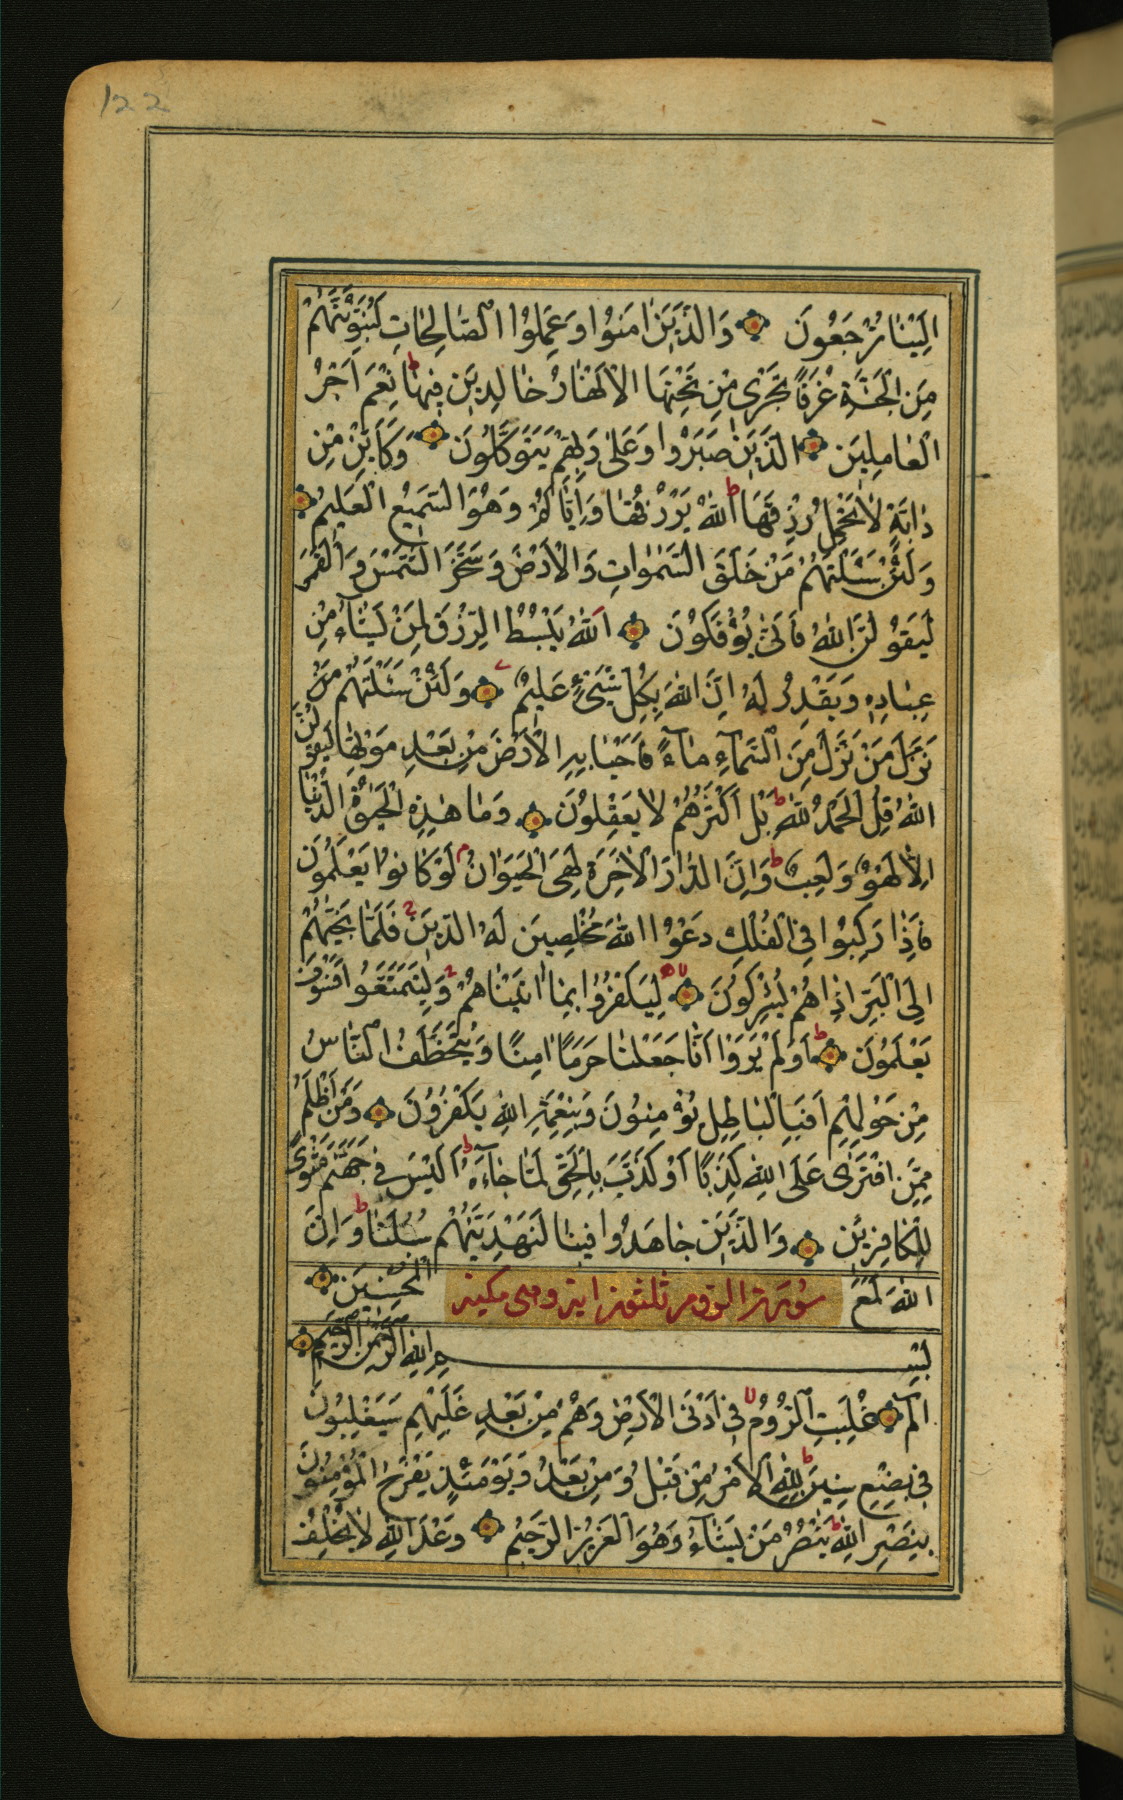 122
اِلَيْنَا تُرْجَعُونَ وَالَّذِينَ اٰمَنُوا وَعَمِلُوا الصَّالِحَاتِ لَنُبَوِّئَنَّهُمْ
مِنَ الْجَنَّةِ غُرَفًا تَجْرِي مِنْ تَحْتِهَا الْاَنْهَارُ خَالِدِينَ فِيهَا ط نِعْمَ اَجْرُ
الْعَامِلِينَ الَّذِينَ صَبَرُوا وَعَلٰى رَبِّهِمْ يَتَوَكَّلُونَ وَكَاَيِّنْ مِنْ
دَابَّةٍ لَا تَحْمِلُ رِزْقَهَا ط اَللّٰهُ يَرْزُقُهَا وَاِيَّاكُمْ وَهُوَ السَّمِيعُ الْعَلِيمُ
وَلَئِنْ سَئَلْتَهُمْ مَنْ خَلَقَ السَّمٰوَاتِ وَالْاَرْضَ وَسَخَّرَ الشَّمْسَ وَالْقَمَرَ
لَيَقُولُنَّ اللّٰهُ فَاَنّٰى يُؤْفَكُونَ اَللّٰهُ يَبْسُطُ الرِّزْقَ لِمَنْ يَشَاءُ مِنْ
عِبَادِهِ وَيَقْدِرُ لَهُ اِنَّ اللّٰهَ بِكُلِّ شَيْءٍ عَلِيمٌ وَلَئِنْ سَئَلْتَهُمْ مَنْ
نَزَّلَ مَنْ نَزَّلَ مِنَ السَّمَاءِ مَاءً فَاَحْيَا بِهِ الْاَرْضَ مِنْ بَعْدِ مَوْتِهَا لَيَقُولُنَّ
اللّٰهُ قُلِ الْحَمْدُ لِلّٰهِ ط بَلْ اَكْثَرُهُمْ لَا يَعْقِلُونَ وَمَا هٰذِهِ الْحَيٰوةُ الدُّنْيَا
اِلَّا لَهْوٌ وَلَعِبٌ ط وَاِنَّ الدَّارَ الْاٰخِرَةَ لَهِيَ الْحَيَوَانُ م لَوْ كَانُوا يَعْلَمُونَ
فَاِذَا رَكِبُوا فِي الْفُلْكِ دَعَوُا اللّٰهَ مُخْلِصِينَ لَهُ الدِّينَ فَلَمَّا نَجّٰيهُمْ
اِلَى الْبَرِّ اِذَا هُمْ يُشْرِكُونَ لِيَكْفُرُوا بِمَا اٰتَيْنَاهُمْ وَلِيَتَمَتَّعُوا فَسَوْفَ
يَعْلَمُونَ اَوَلَمْ يَرَوْا اَنَّا جَعَلْنَا حَرَمًا اٰمِنًا وَيُتَخَطَّفُ النَّاسُ
مِنْ حَوْلِهِمْ اَفَبِالْبَاطِلِ يُؤْمِنُونَ وَبِنِعْمَةِ اللّٰهِ يَكْفُرُونَ وَمَنْ اَظْلَمُ
مِمَّنِ افْتَرٰى عَلَى اللّٰهِ كَذِبًا اَوْ كَذَّبَ بِالْحَقِّ لَمَّا جَاءَهُ ط اَلَيْسَ فِي جَهَنَّمَ مَثْوًى
لِلْكَافِرِينَ وَالَّذِينَ جَاهَدُوا فِينَا لَنَهْدِيَنَّهُمْ سُبُلَنَا ط وَاِنَّ
اللّٰهَ لَمَعَ الْمُحْسِنِينَ
سورة الروم ثلثون اية وهى مكية
بِسْمِ اللّٰهِ الرَّحْمٰنِ الرَّحِيمِ
الٓمٓ غُلِبَتِ الرُّومُ فِي اَدْنَى الْاَرْضِ وَهُمْ مِنْ بَعْدِ غَلَبِهِمْ سَيَغْلِبُونَ
فِي بِضْعِ سِنِينَ ط لِلّٰهِ الْاَمْرُ مِنْ قَبْلُ وَمِنْ بَعْدُ وَيَوْمَئِذٍ يَفْرَحُ الْمُؤْمِنُونَ
بِنَصْرِ اللّٰهِ ط يَنْصُرُ مَنْ يَشَاءُ وَهُوَ الْعَزِيزُ الرَّحِيمُ وَعْدَ اللّٰهِ لَا يُخْلِفُ